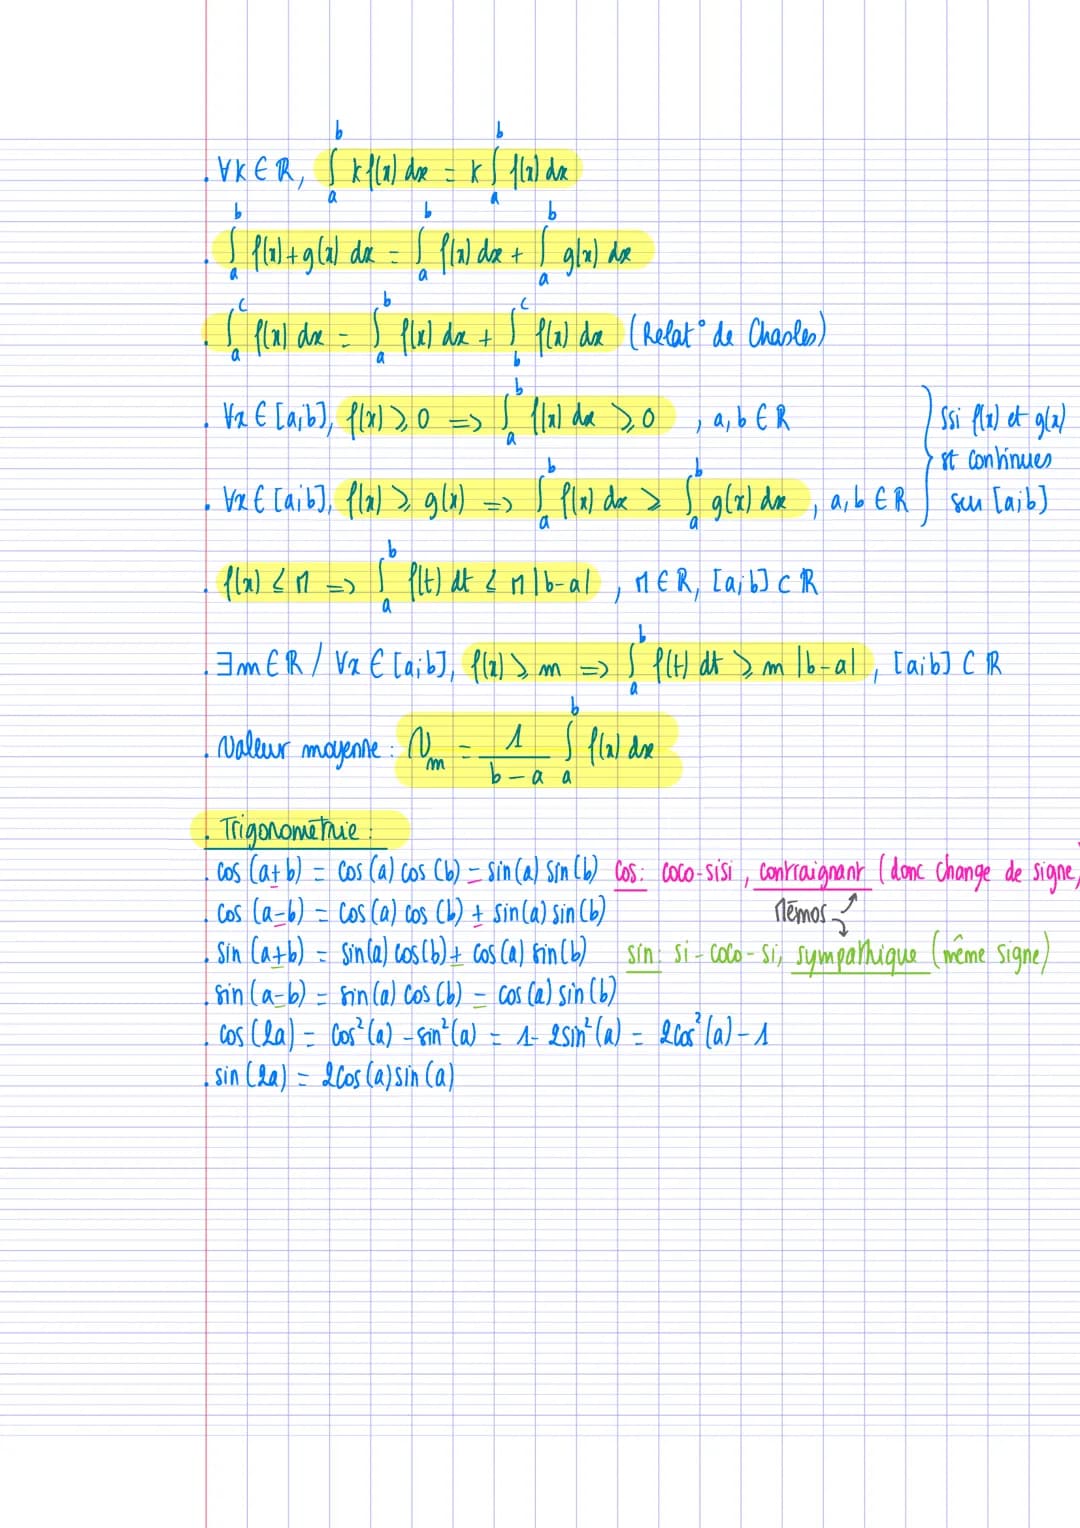 . ∀k ∈ ℝ, ∫_a^b k f(x) dx = k ∫_a^b f(x) dx
. ∫_a^b f(x) + g(x) dx = ∫_a^b f(x) dx + ∫_a^b g(x) dx
. ∫_a^c f(x) dx = ∫_a^b f(x) dx + ∫_b^c f(x) dx (Relat° de Chasles)
. ∀x ∈ [a;b], f(x) ⩾ 0 => ∫_a^b f(x) dx ⩾ 0 , a, b ∈ ℝ
. ∀x ∈ [a;b], f(x) ⩾ g(x) => ∫_a^b f(x) dx ⩾ ∫_a^b g(x) dx , a, b ∈ ℝ
} Ssi f(x) et g(x)
st continues
sur [a;b]
. f(x) ⩽ M => ∫_a^b f(t) dt ⩽ M |b-a| , M ∈ ℝ, [a;b] ⊂ ℝ
. ∃m ∈ ℝ / ∀x ∈ [a;b], f(x) ⩾ m => ∫_a^b f(t) dt ⩾ m |b-a| , [a;b] ⊂ ℝ
. Valeur moyenne : V_m = 1/(b-a) ∫_a^b f(x) dx
. Trigonométrie :
. cos (a+b) = cos (a) cos (b) - sin(a) sin (b) cos : coco-sisi , contraignant (donc change de signe)
. cos (a-b) = cos (a) cos (b) + sin(a) sin (b) Mémos
. sin (a+b) = sin(a) cos(b) + cos(a) sin(b) sin : si-coco-si, sympathique (même signe)
. sin (a-b) = sin(a) cos (b) - cos (a) sin (b)
. cos (2a) = cos²(a) - sin²(a) = 1 - 2sin²(a) = 2cos²(a) - 1
. sin (2a) = 2cos (a) sin (a)